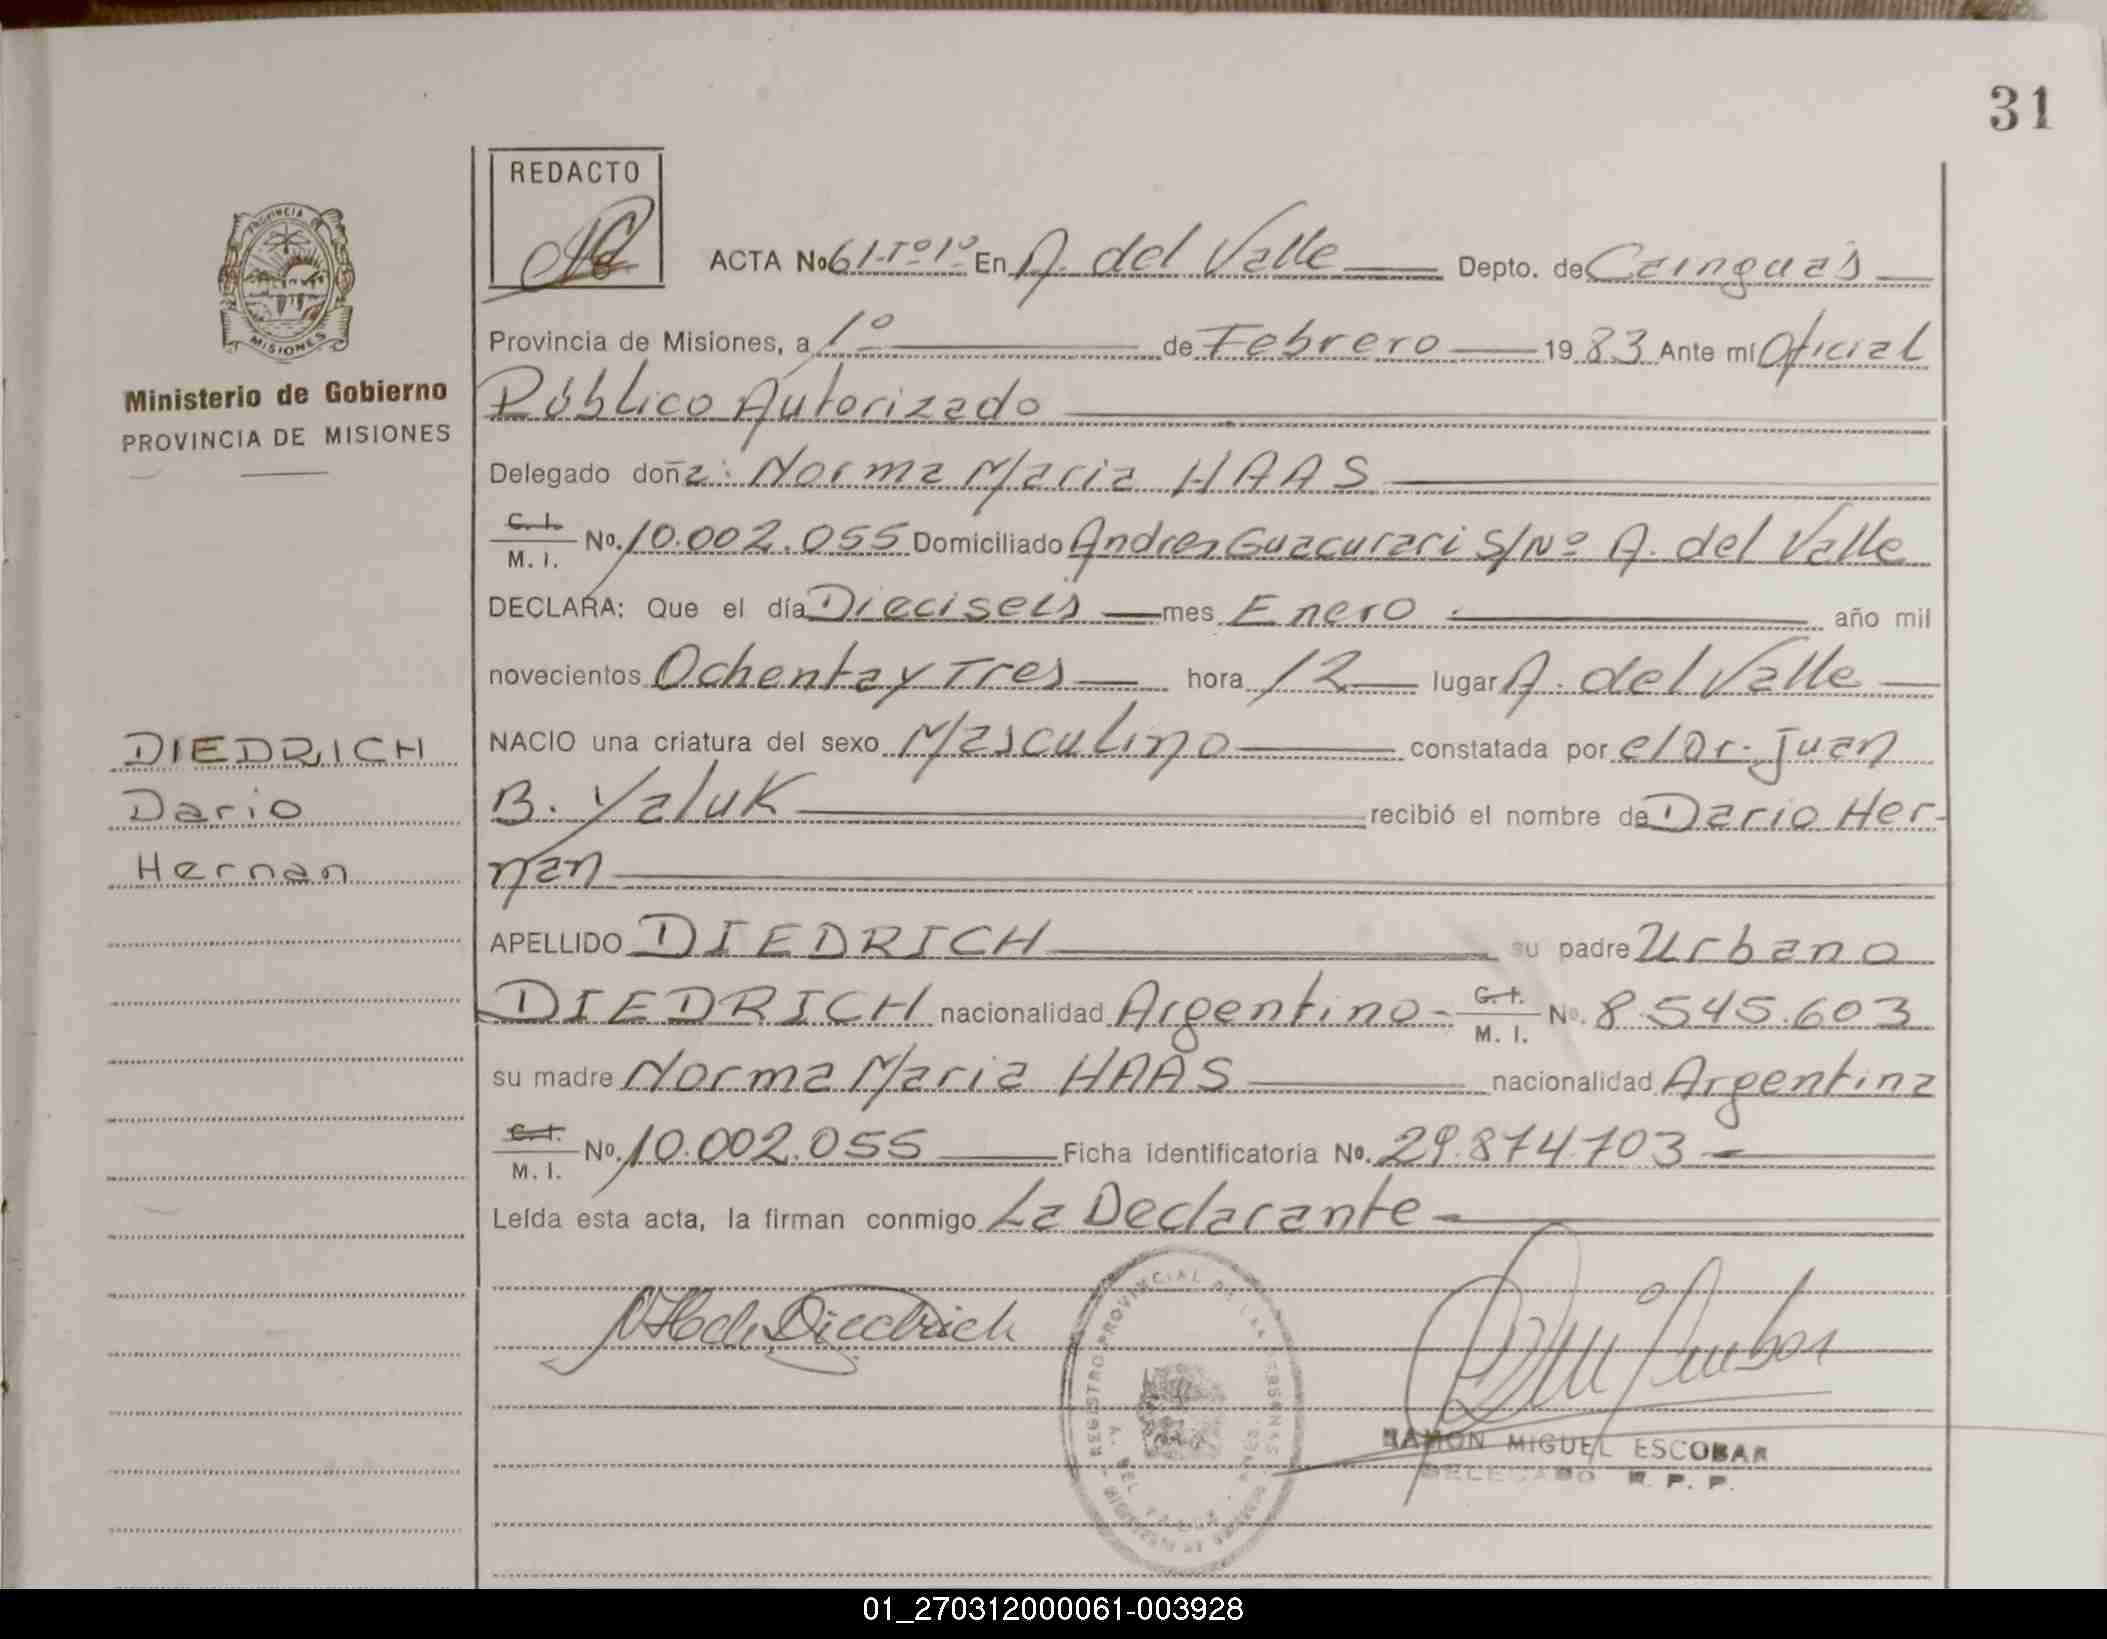 31
REDACTO
ACTA No 61-Tº1º En A. del Valle Depto. de Cainguás
Provincia de Misiones, a 1º de Febrero 1983 Ante mí Oficial
Público Autorizado
Ministerio de Gobierno
PROVINCIA DE MISIONES
Delegado doña: Norma Maria HAAS
C. I.
M. I. No. 10.002.055 Domiciliado Andres Guacurari S/Nº A. del Valle
DECLARA: Que el día Dieciseis mes Enero año mil
novecientos Ochenta y Tres hora 12 lugar A. del Valle
NACIO una criatura del sexo Masculino constatada por el Dr. Juan
B. Yaluk recibió el nombre de Dario Her-
nan
DIEDRICH
Dario
Hernan
APELLIDO DIEDRICH su padre Urbano
DIEDRICH nacionalidad Argentino - C. I.
M. I. No. 8.545.603
su madre Norma Maria HAAS nacionalidad Argentina
C. I.
M. I. No. 10.002.055 Ficha identificatoria No. 29.874.703
Leída esta acta, la firman conmigo La Declarante
Diedrich
REGISTRO PROVINCIAL DE LAS PERSONAS
A. DEL VALLE
RAMON MIGUEL ESCOBAR
DELEGADO R. P. P.
01_270312000061-003928